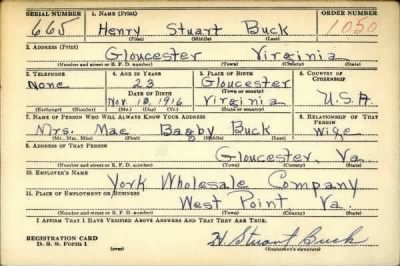 SERIAL NUMBER 1. NAME (Print) ORDER NUMBER
665 Henry Stuart Buck 1050
(First) (Middle) (Last)
2. ADDRESS (Print)
Gloucester Virginia
(Number and street or R. F. D. number) (Town) (County) (State)
3. TELEPHONE 4. AGE IN YEARS 5. PLACE OF BIRTH 6. COUNTRY OF CITIZENSHIP
None 23 Gloucester
DATE OF BIRTH (Town or county)
Nov. 18, 1916 Virginia U.S.A.
(Exchange) (Number) (Mo.) (Day) (Yr.) (State or country)
7. NAME OF PERSON WHO WILL ALWAYS KNOW YOUR ADDRESS 8. RELATIONSHIP OF THAT PERSON
Mrs. Mae Bagby Buck Wife
(Mr., Mrs., Miss) (First) (Middle) (Last)
9. ADDRESS OF THAT PERSON
Gloucester, Va.
(Number and street or R. F. D. number) (Town) (County) (State)
10. EMPLOYER'S NAME
York Wholesale Company
11. PLACE OF EMPLOYMENT OR BUSINESS
West Point Va.
(Number and street or R. F. D. number) (Town) (County) (State)
I AFFIRM THAT I HAVE VERIFIED ABOVE ANSWERS AND THAT THEY ARE TRUE.
REGISTRATION CARD
D. S. S. Form 1 (over) H. Stuart Buck
(Registrant's signature)